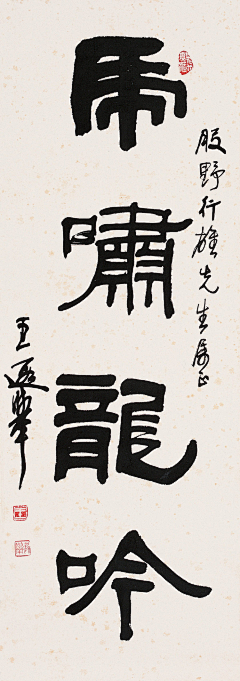 虎啸龍吟
股野行雄先生属正
王遐舉